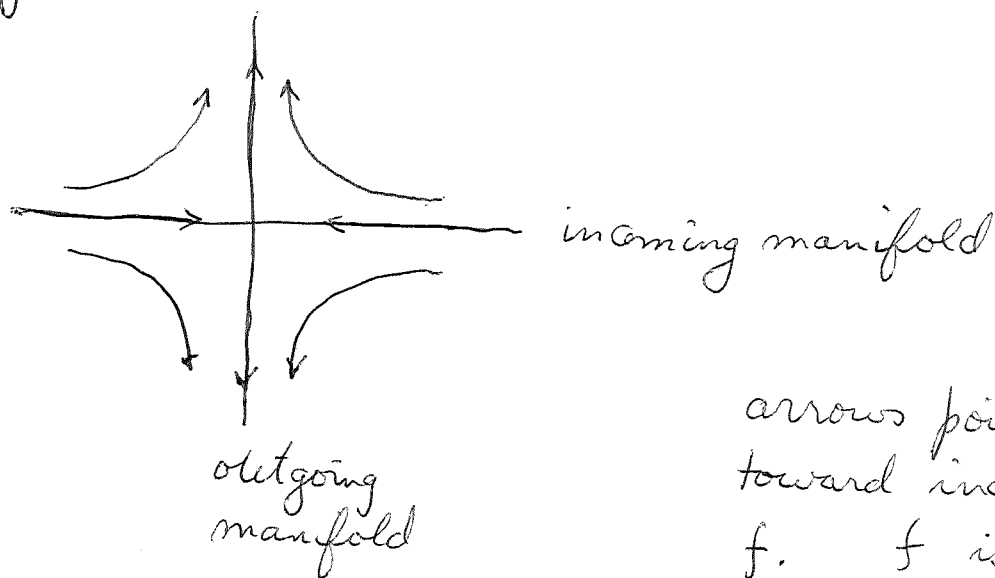 incoming manifold
outgoing
manifold
arrows poi
toward inc
f. f is